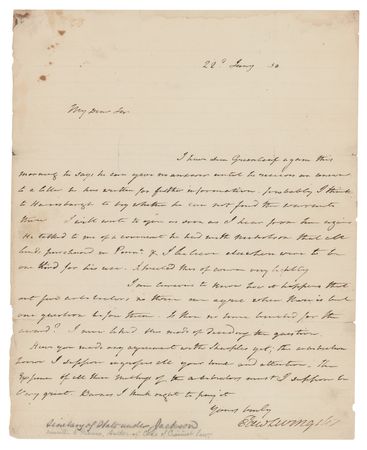 22d Jany 30
My Dear Sir
I have seen Greenleaf again this
morning he says he can give no answer until he receives an answer
to a letter he has written for further information probably I think
to Harrisburgh to try whether he can not find the warrants
there I will write to you as soon as I hear from him again
He talked to me of a covenant he had with Nicholson that all
lands purchased in Pennsa. & I believe elsewhere were to be
one third for his use. I treated this of course very lightly
I am anxious to know how it happens that
our good arbitrators, no three can agree when there is but
one question before them. Is there no time limited for the
award? I never liked this mode of deciding the question
Have you made any agreement with Sharples yet; the arbitration
however I suppose engrosses all your time and attention. The
Expense of all these meetings of the arbitrators must I suppose be
very great. I think ought to pay it
Yours truly
Edwd Livingston
Secretary of State under Jackson
Author of Code of Criminal Law